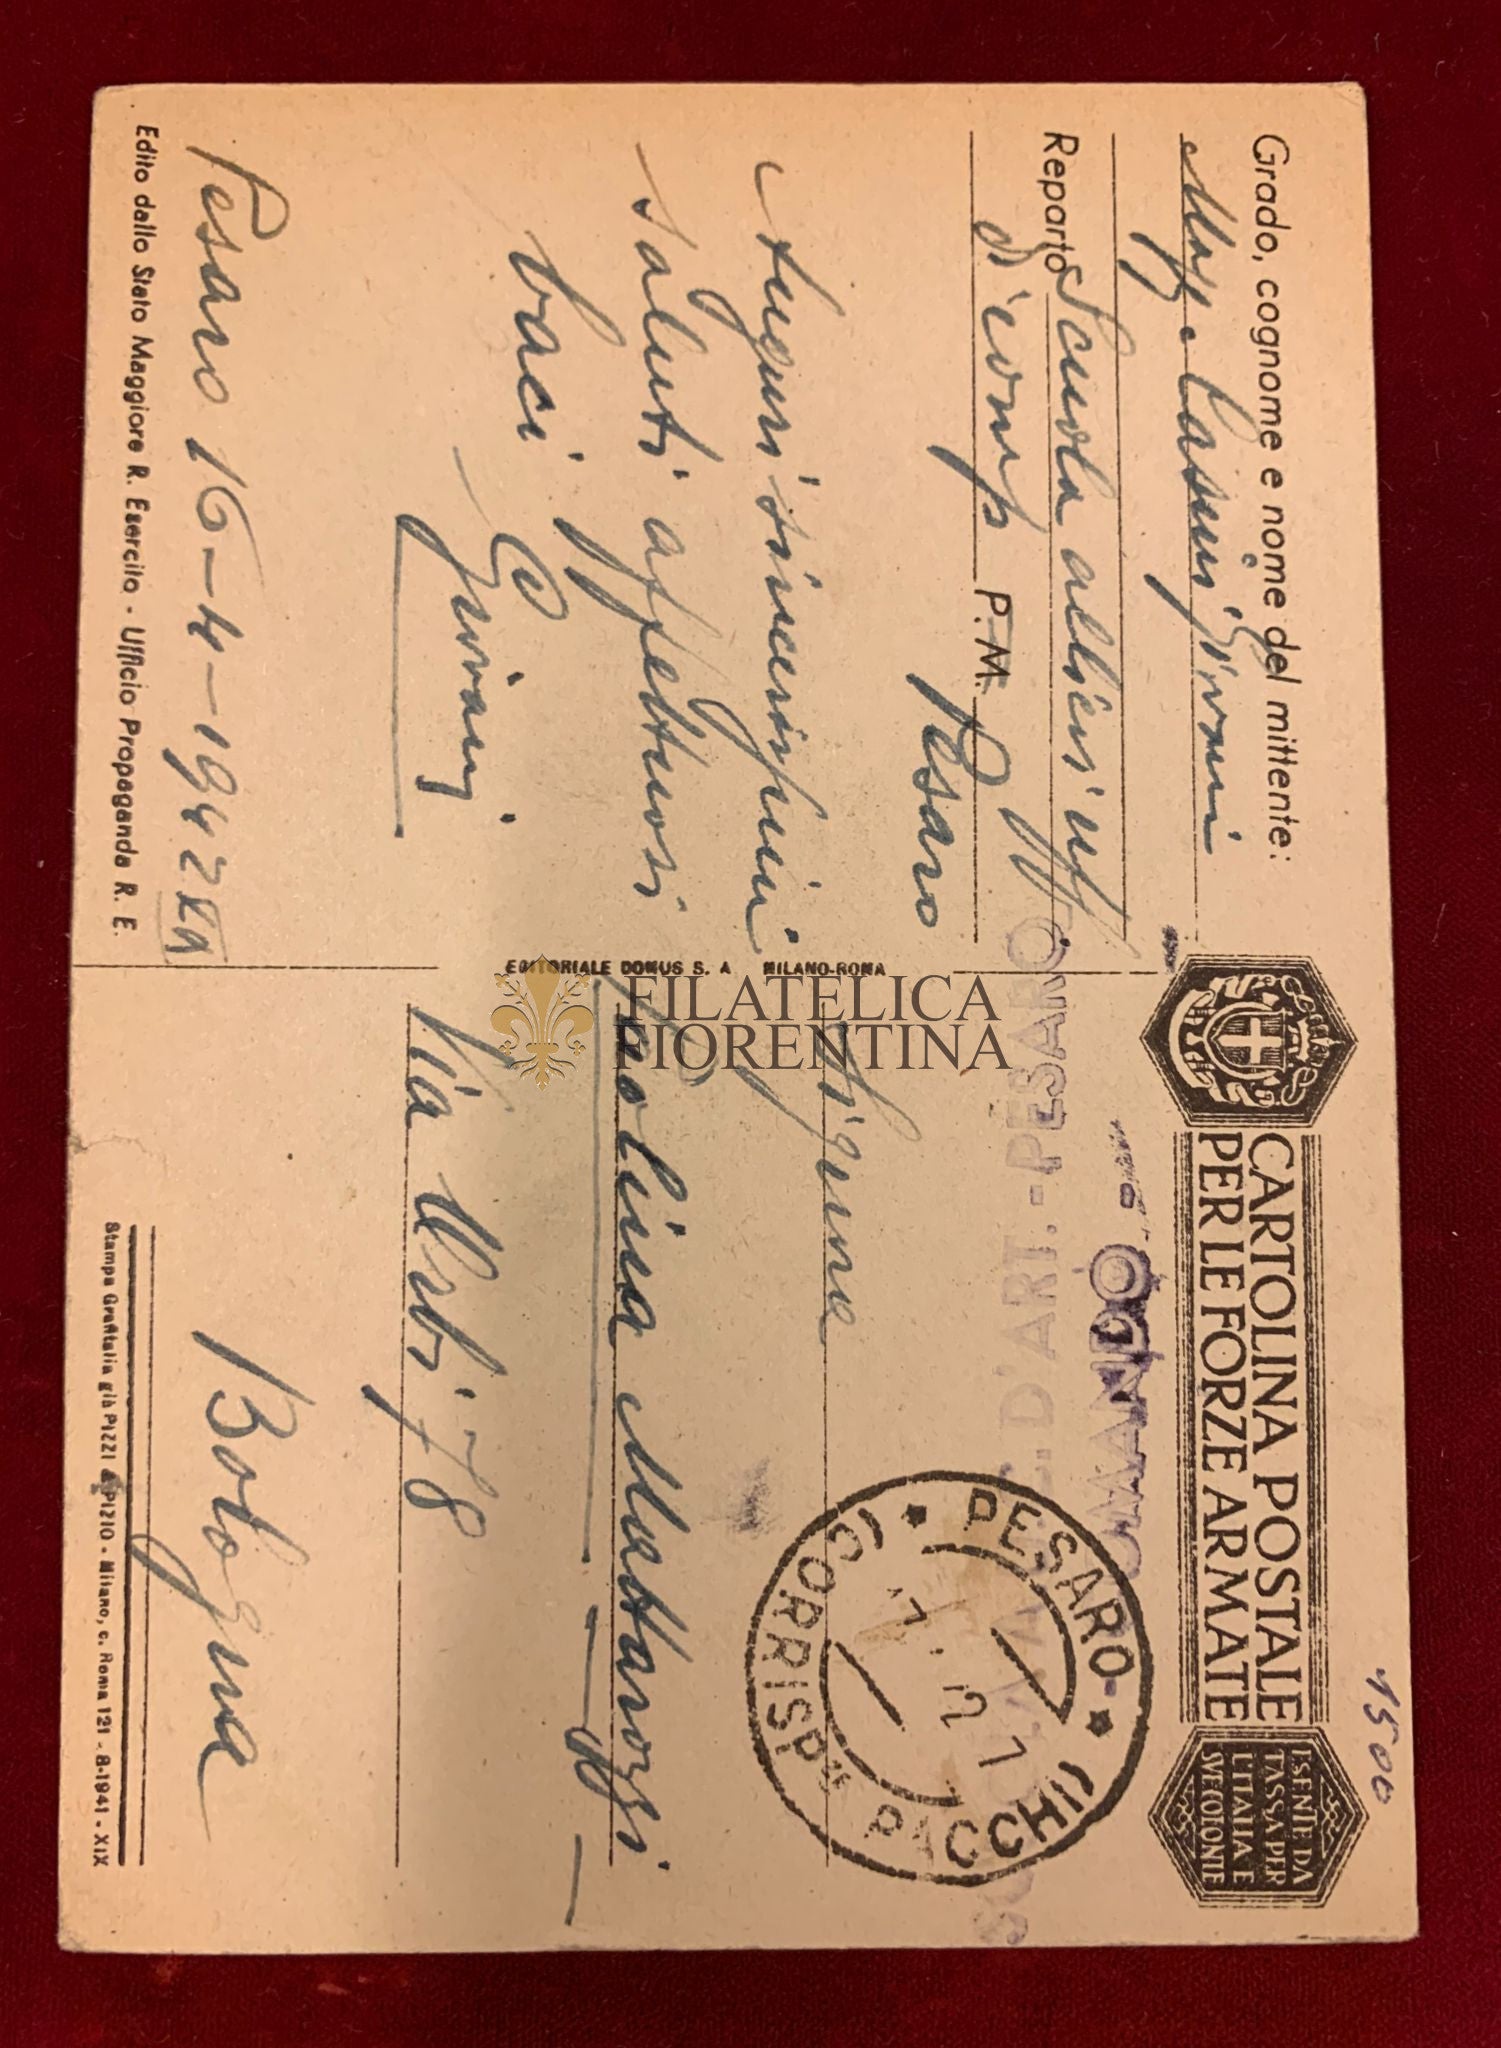 CARTOLINA POSTALE
PER LE FORZE ARMATE
ESENTE DA
TASSA PER
L'ITALIA E
SVE COLONIE
1500
Grado, cognome e nome del mittente:
Magg.
Reparto Scuola allievi uff
di comp P. M. Pesaro
Auguri sincerissimi
saluti affettuosi
baci
Giovanni
Pesaro 16-4-1942 XX
Edito dallo Stato Maggiore R. Esercito - Ufficio Propaganda R. E.
EDITORIALE DOMUS S. A MILANO-ROMA
COMANDO
D'ART. - PESARO
PESARO
CORRISPze PACCHI
Paolina Mattarozzi
Via Orbi 78
Bologna
Stampa Grafitalia già PIZZI & PIZIO - Milano, c. Roma 121 - 8-1941 - XIX
FILATELICA
FIORENTINA